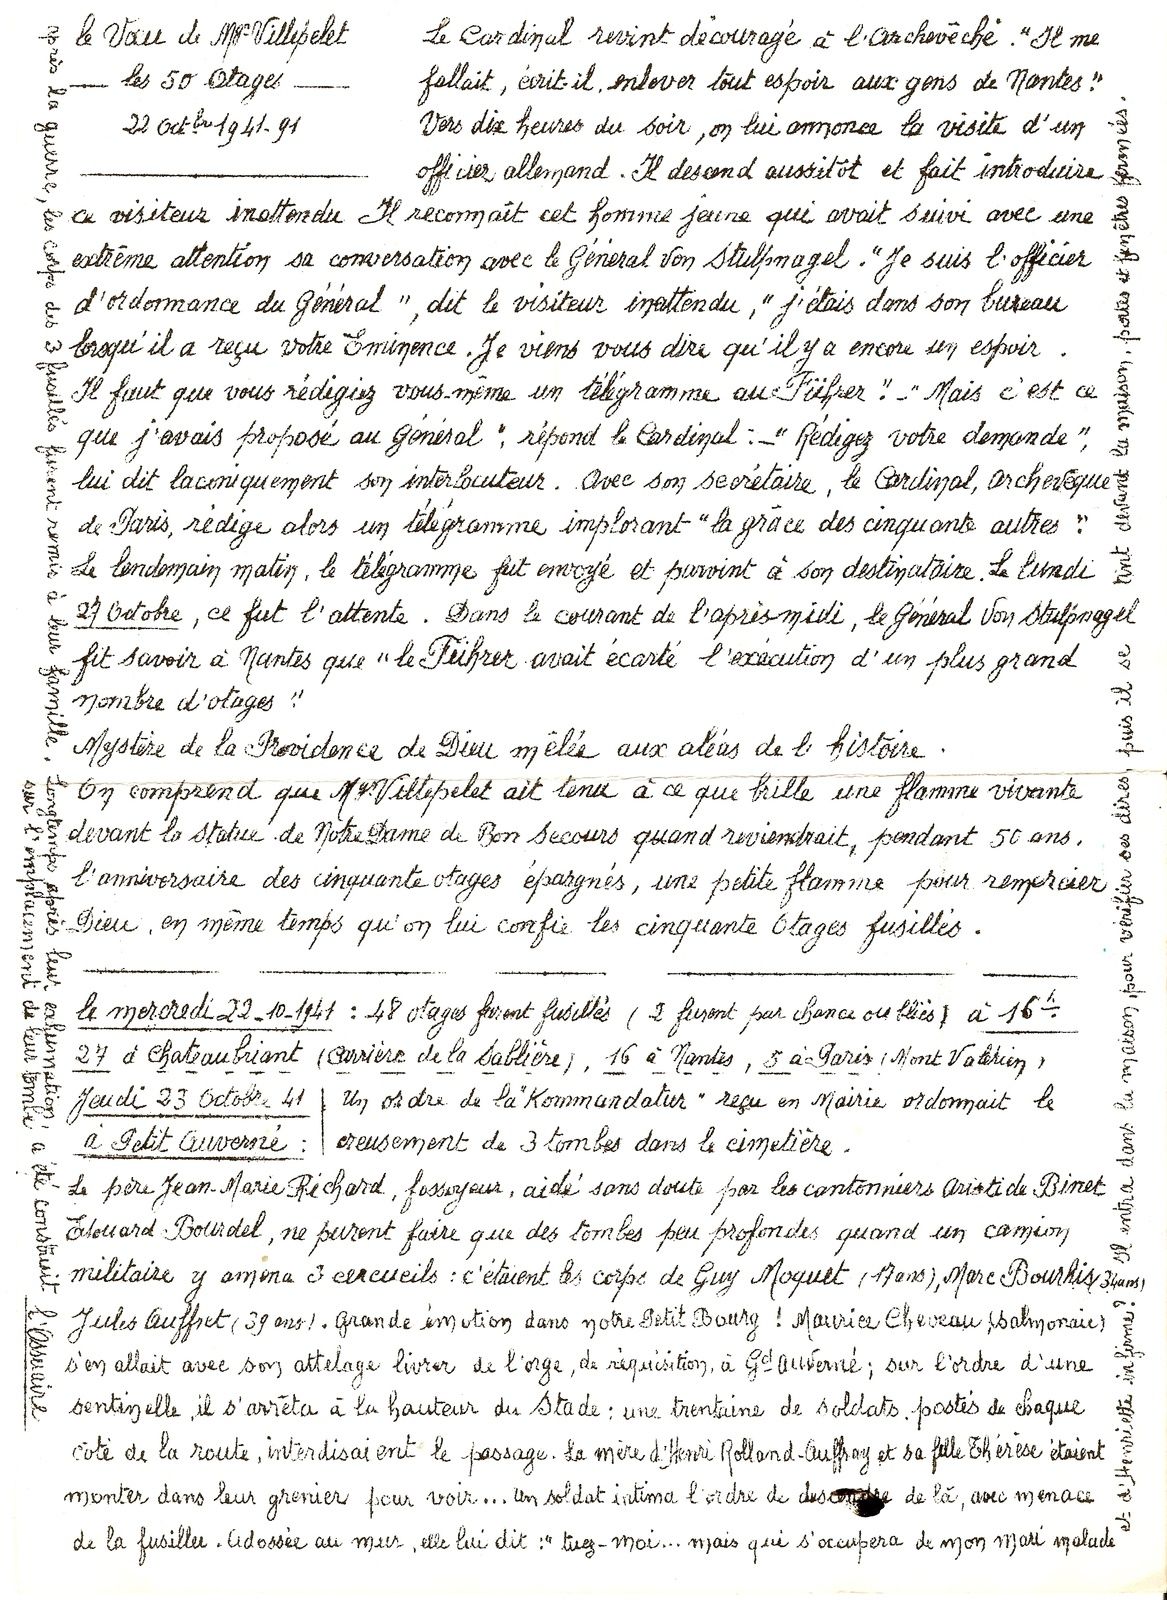 le Vœu de Mgr Villepelet
les 50 Otages
22 Octbre 1941-91
Le Cardinal revint découragé à l'Archevêché. "Il me
fallait, écrit-il, enlever tout espoir aux gens de Nantes".
Vers dix heures du soir, on lui annonce la visite d'un
officier allemand. Il descend aussitôt et fait introduire
ce visiteur inattendu Il reconnaît cet homme jeune qui avait suivi avec une
extrême attention sa conversation avec le Général Von Stulpnagel. "Je suis l'officier
d'ordonnance du Général", dit le visiteur inattendu, "j'étais dans son bureau
lorsqu'il a reçu votre Eminence. Je viens vous dire qu'il y a encore un espoir.
Il faut que vous rédigiez vous-même un télégramme au Führer". -"Mais c'est ce
que j'avais proposé au Général", répond le Cardinal: -"Rédigez votre demande",
lui dit laconiquement son interlocuteur. Avec son secrétaire, le Cardinal, Archevêque
de Paris, rédige alors un télégramme implorant "la grâce des cinquante autres".
Le lendemain matin, le télégramme fut envoyé et parvint à son destinataire. Le lundi
27 Octobre, ce fut l'attente. Dans le courant de l'après-midi, le Général Von Stulpnagel
fit savoir à Nantes que "le Führer avait écarté l'exécution d'un plus grand
nombre d'otages".
Mystère de la Providence de Dieu mêlée aux aléas de l'histoire.
On comprend que Mgr Villepelet ait tenu à ce que brille une flamme vivante
devant la statue de Notre Dame de Bon Secours quand reviendrait, pendant 50 ans,
l'anniversaire des cinquante otages épargnés, une petite flamme pour remercier
Dieu, en même temps qu'on lui confie les cinquante Otages fusillés.
le mercredi 22-10-1941 : 48 otages furent fusillés (2 furent par chance oubliés) à 16h
27 à Chateaubriant (Carrière de la Sablière), 16 à Nantes, 5 à Paris (Mont Valérien)
Jeudi 23 Octobre 41 | Un ordre de la "Kommandatur" reçu en Mairie ordonnait le
à Petit Auverné : | creusement de 3 tombes dans le cimetière.
Le père Jean-Marie Richard, fossoyeur, aidé sans doute par les cantonniers Aristide Binet
Edouard Bourdel, ne purent faire que des tombes peu profondes quand un camion
militaire y amena 3 cercueils : c'étaient les corps de Guy Moquet (17 ans), Marc Bourhis (34 ans)
Jules Auffret (39 ans). Grande émotion dans notre Petit Bourg ! Maurice Cheveau (Salmonaie)
s'en allait avec son attelage livrer de l'orge, de réquisition, à Gd Auverné; sur l'ordre d'une
sentinelle, il s'arrêta à la hauteur du Stade; une trentaine de soldats, postés de chaque
côté de la route, interdisaient le passage. La mère d'Henri Rolland-Auffray et sa fille Thérèse étaient
monter dans leur grenier pour voir... un soldat intima l'ordre de descendre de là, avec menace
de la fusiller. Adossée au mur, elle lui dit :" tuez-moi... mais qui s'occupera de mon mari malade
et d'Henriette infirme ? Il entra dans la maison pour vérifier ses dires puis il se tint devant la maison, portes et fenêtres fermées.
après la guerre, les corps des 3 fusillés furent remis à leur famille. Longtemps après leur exhumation a été construit l'Ossuaire
sur l'emplacement de leur tombe